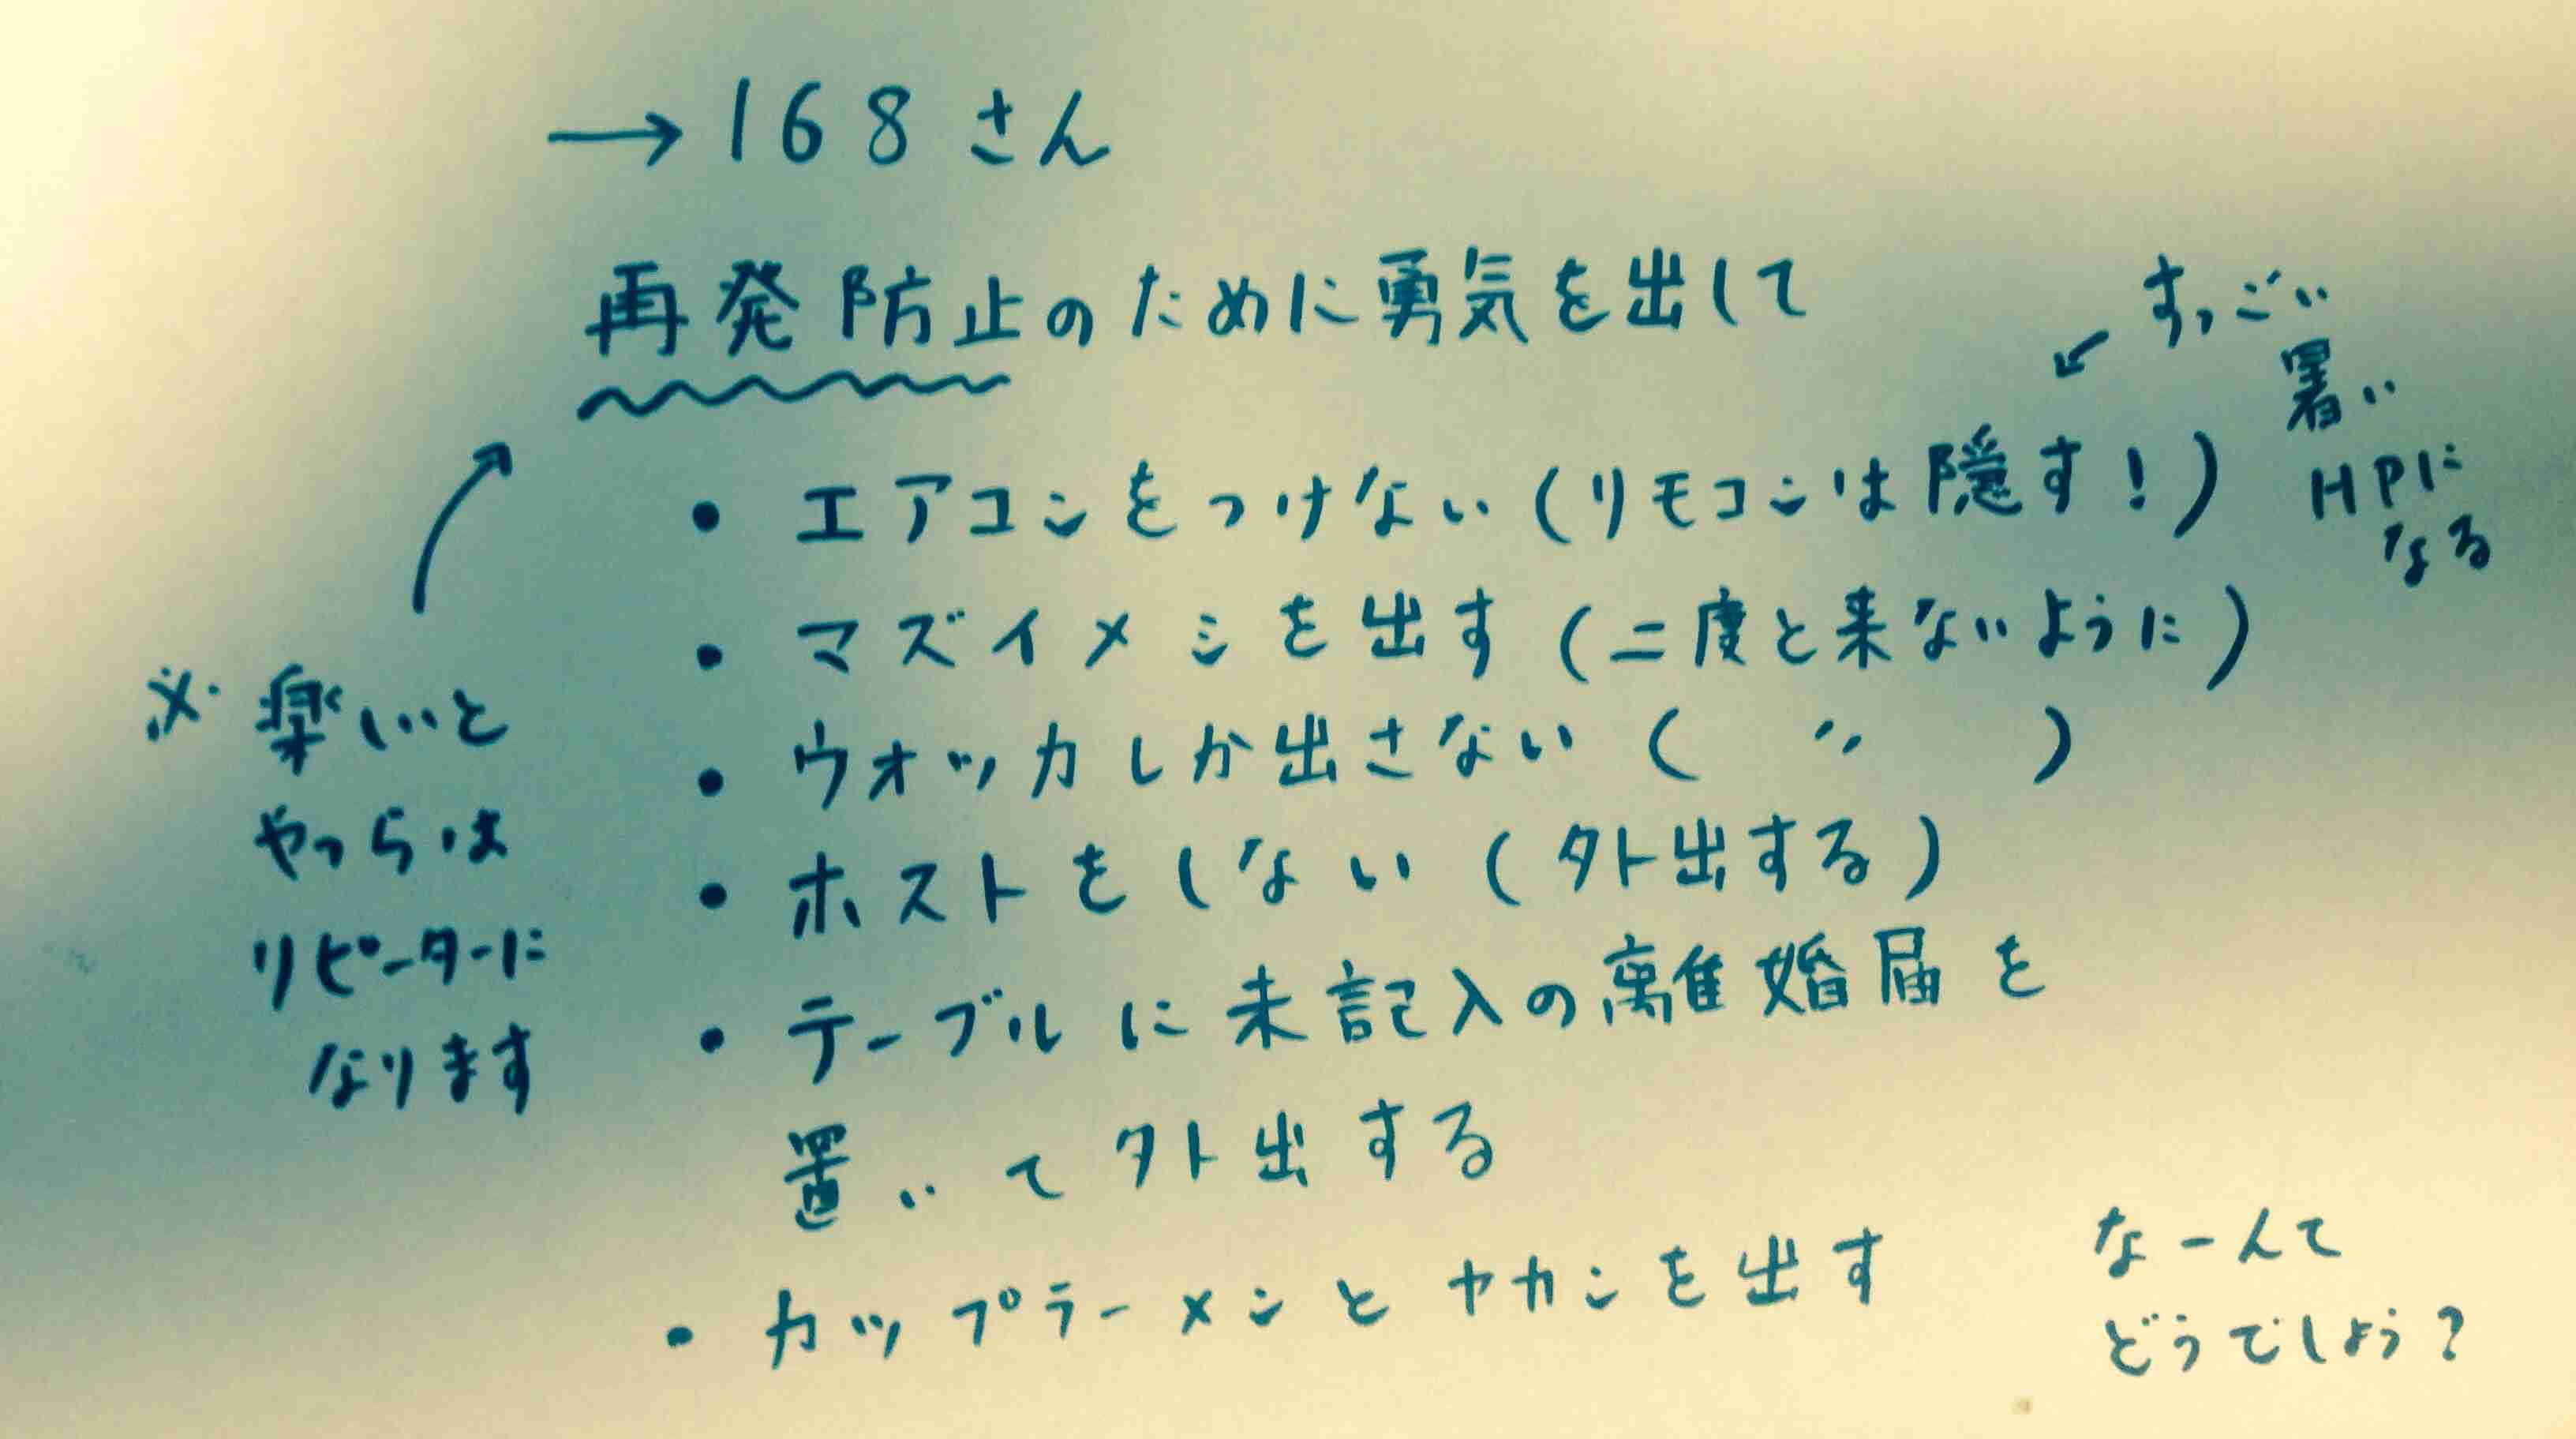 →168さん
再発防止のために勇気を出して
・エアコンをつけない(リモコンは隠す!)
↙すっごい
暑い
HPに
なる
・マズイメシを出す(二度と来ないように)
・ウオッカしか出さない(〃)
・ホストをしない(外出する)
・テーブルに未記入の離婚届を
置いて外出する
・カップラーメンとヤカンを出す
※楽しいと
やつらは
リピーターに
なります
なーんて
どうでしょう?